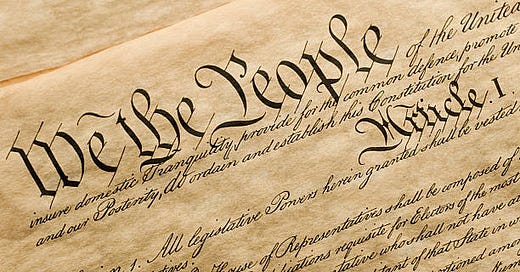 We the People of the United
insure domestic Tranquility, provide for the common defence, promote
and our Posterity, do ordain and establish this Constitution for the Un
Article. I.
n. 1. All legislative Powers herein granted shall be vested
House of Representatives shall be composed of
ications requisite for Electors of the most
tative who shall not have at
tant of that State in w